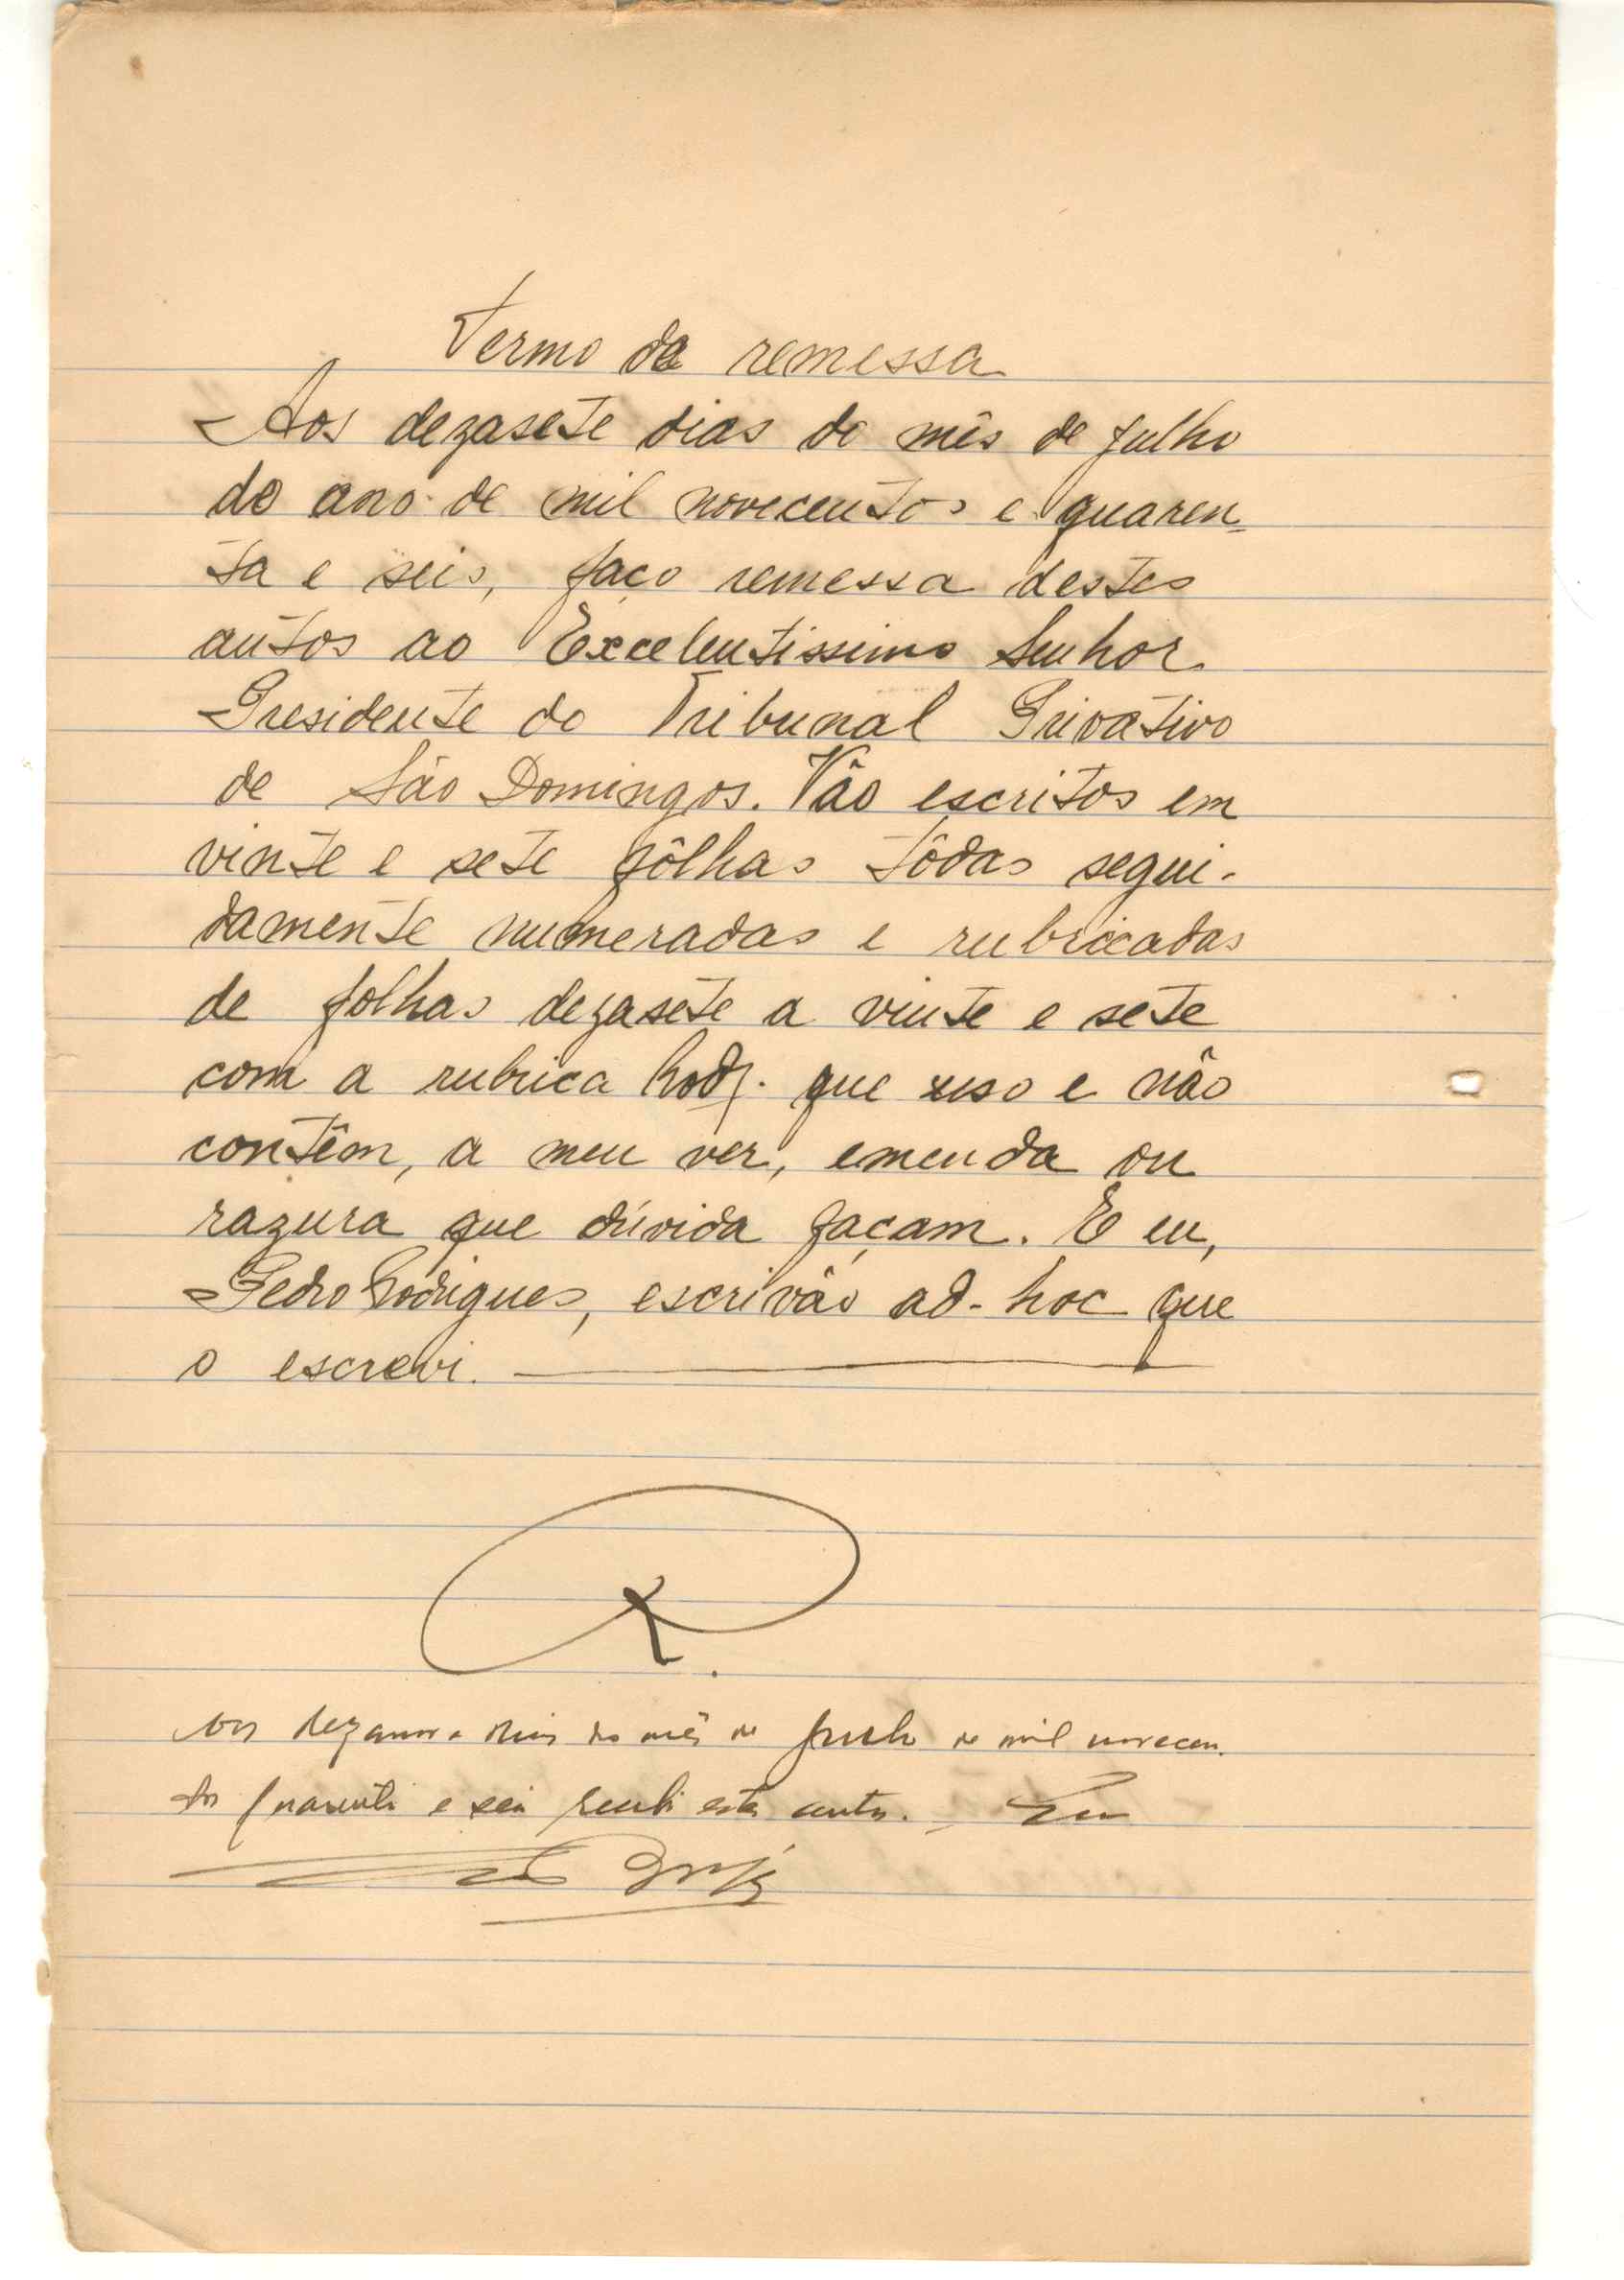 Termo da remessa
Aos dezasete dias do mês de Julho
do ano de mil novecentos e quaren-
ta e seis, faço remessa destes
autos ao Excelentissimo Senhor
Presidente do Tribunal Privativo
de São Domingos. Vão escritos em
vinte e sete fôlhas tôdas segui-
damente numeradas e rubricadas
de folhas dezasete a vinte e sete
com a rubrica Rodr. que uso e não
contêm, a meu ver, emenda ou
razura que dúvida façam. E eu,
Pedro Rodrigues, escrivão ad-hoc que
o escrevi.
R.
Aos dezanove dias do mês de Julho de mil novecen-
tos quarenta e seis recebi estes autos. Eu